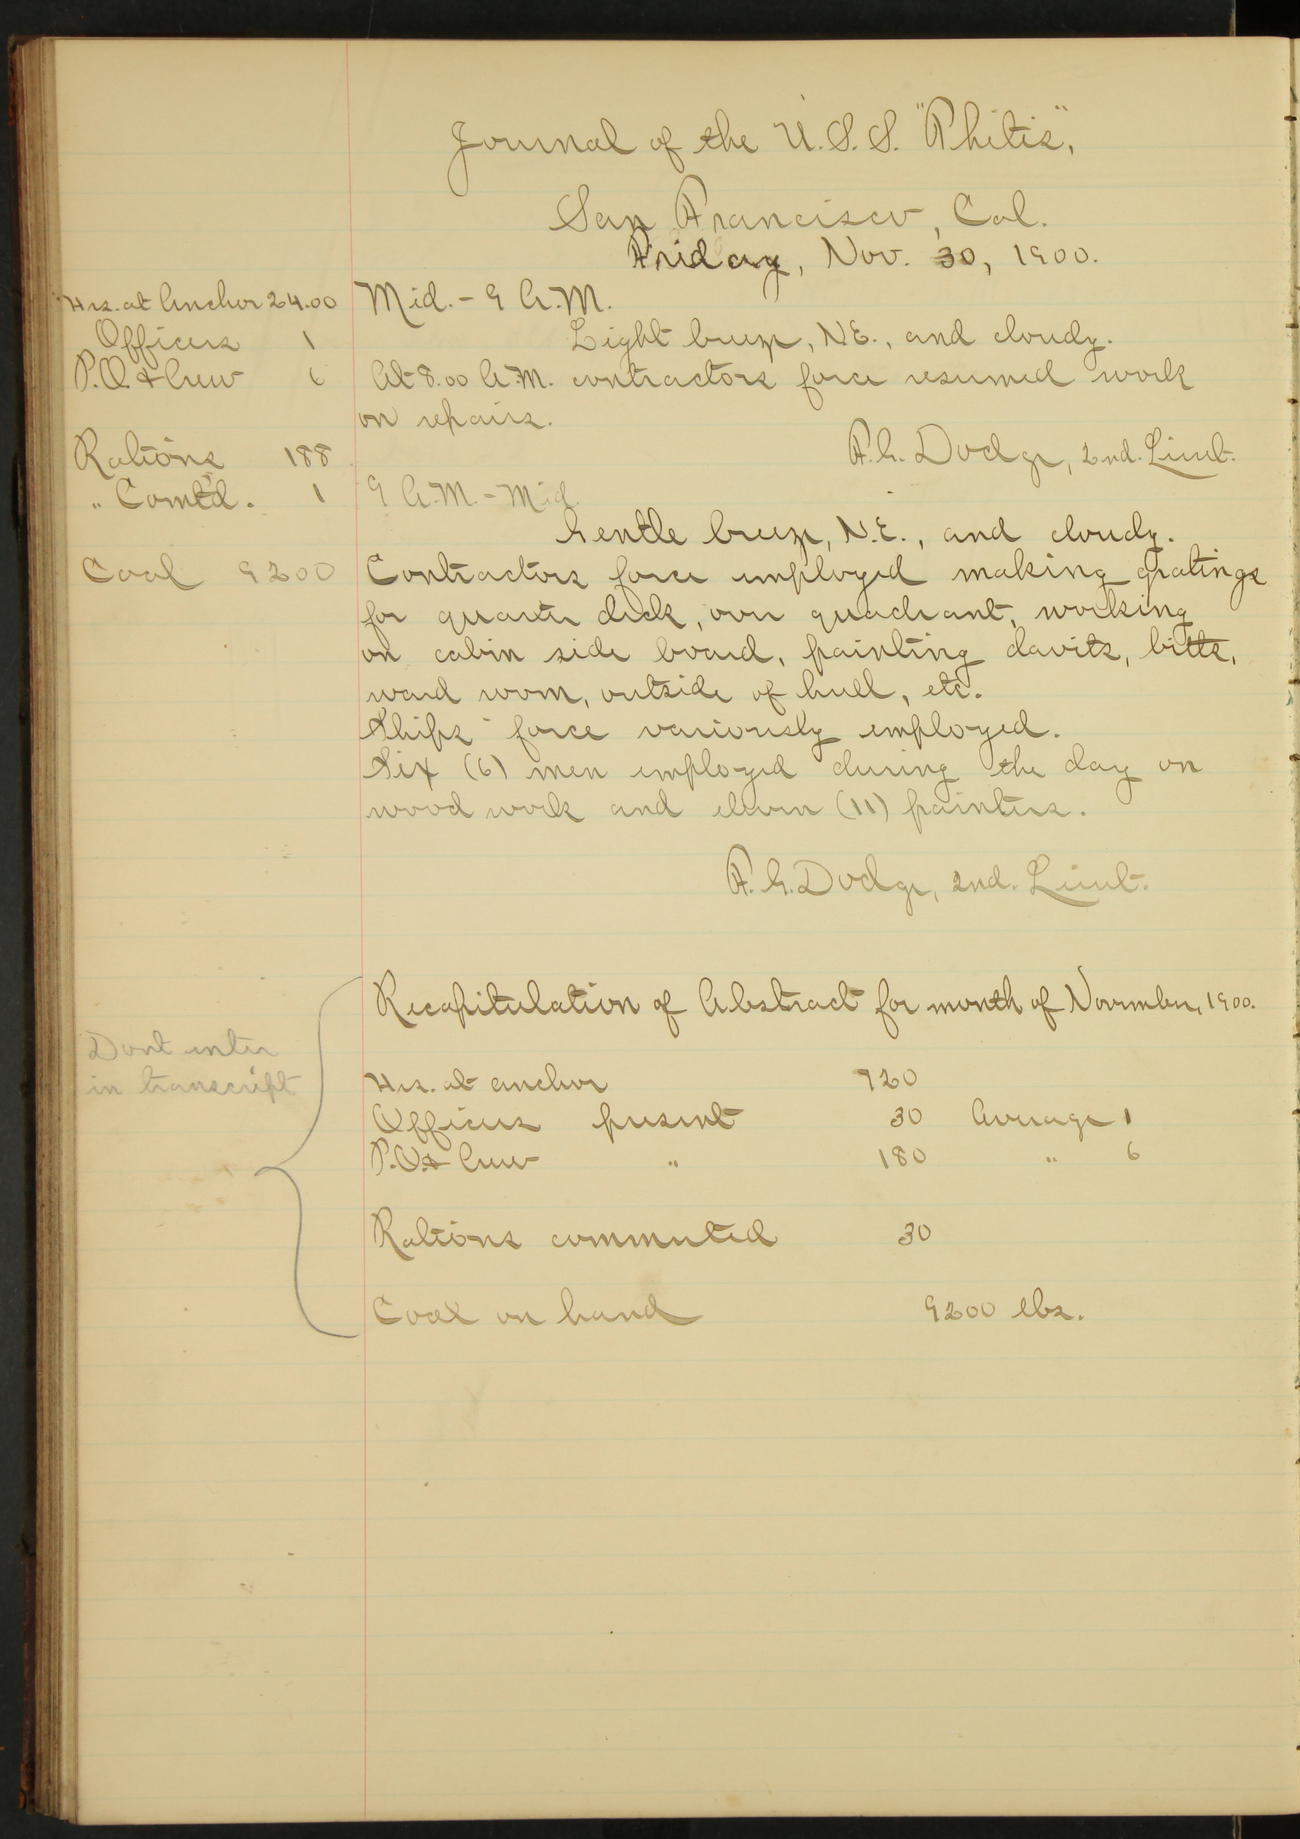 Journal of the U.S.S. "Phitis",
San Francisco, Cal.
Friday, Nov. 30, 1900.
Hrs. at Anchor 24.00
Officers 1
P.O. & Crew 6
Rations 188
" Comt'd. 1
Coal 9200
Mid. - 9 A.M.
Light breeze, N.E., and cloudy.
At 8.00 A.M. contractors force resumed work
on repairs.
F.G. Dodge, 2nd. Lieut.
9 A.M. - Mid.
Gentle breeze, N.E., and cloudy.
Contractors force employed making gratings
for quarter deck, over quadrant, working
on cabin side board, painting davits, bitts,
ward room, outside of hull, etc.
Ships force variously employed.
Six (6) men employed during the day on
wood work and eleven (11) painters.
F.G. Dodge, 2nd. Lieut.
Dont enter
in transcript
Recapitulation of Abstract for month of November, 1900.
Hrs. at anchor 720
Officers present 30 Average 1
P.O. & Crew " 180 " 6
Rations commuted 30
Coal on hand 9200 lbs.